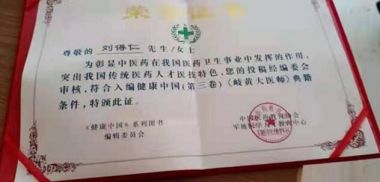 荣誉证书
尊敬的 刘得仁 先生/女士
为彰显中医药在我国医药卫生事业中发挥的作用,
突出我国传统医药人才医技特色,您的投稿经编委会
审核,符合入编健康中国(第三卷)《岐黄大医师》典籍
条件,特颁此证。
《健康中国》系列图书
编辑委员会